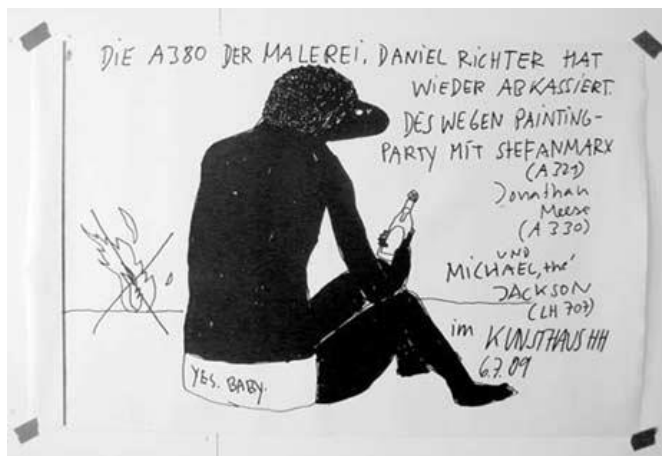 DIE A380 DER MALEREI, DANIEL RICHTER HAT
WIEDER ABKASSIERT.
DESWEGEN PAINTING-
PARTY MIT STEFANMARX
(A321)
Jonathan
Meese
(A330)
UND
MICHAEL, the'
JACKSON
(LH707)
im KUNSTHAUS HH
6.7.09
YES. BABY.